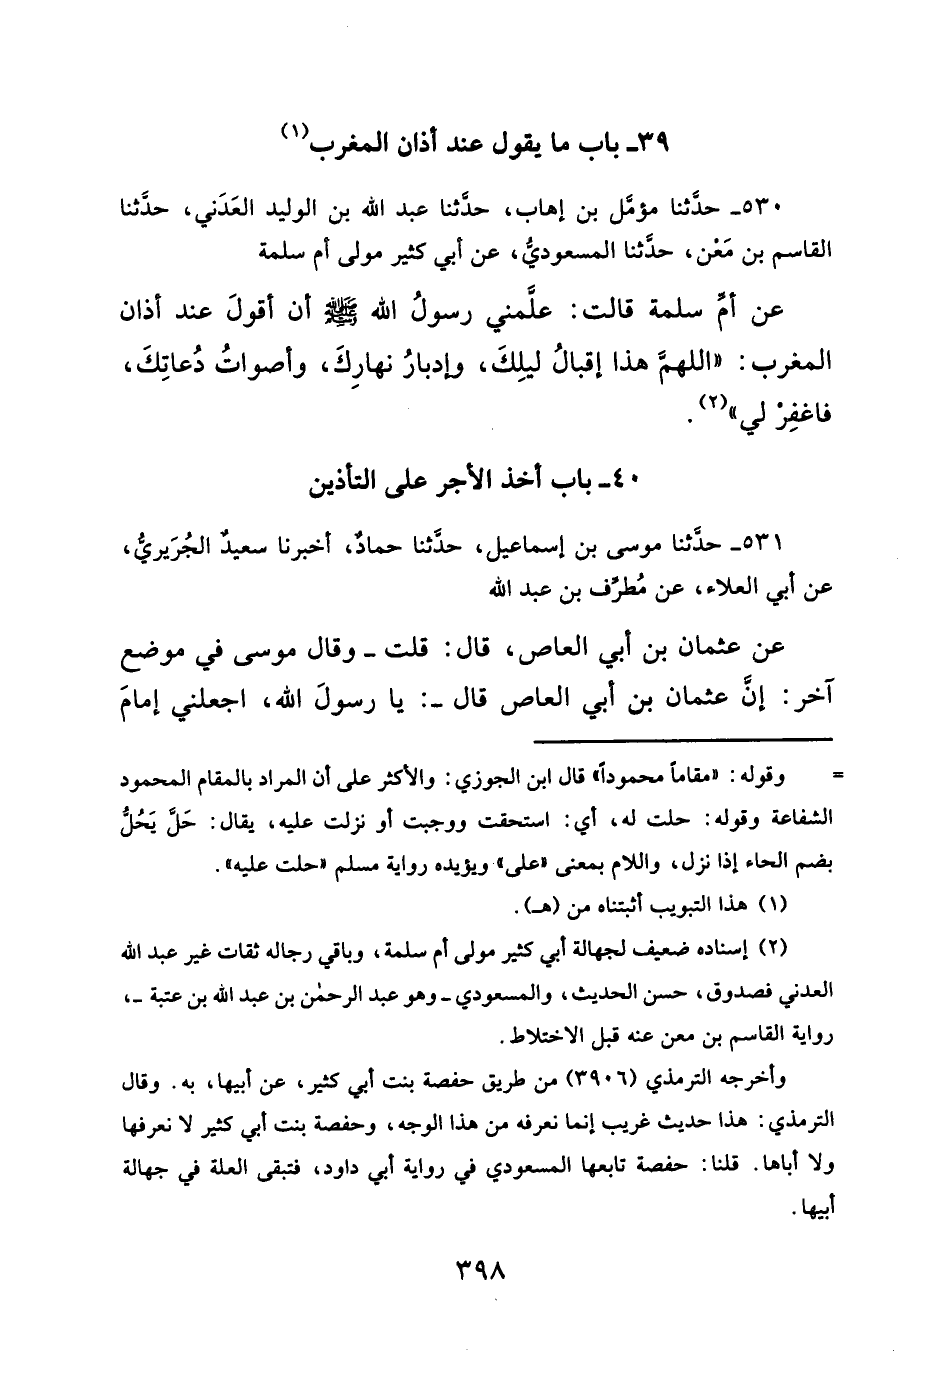 ٣٩ـ باب ما يقول عند أذان المغرب(١)
٥٣٠ـ حدَّثنا مؤمَّل بن إهاب، حدَّثنا عبد الله بن الوليد العَدَني، حدَّثنا
القاسم بن مَعْن، حدَّثنا المسعوديُّ، عن أبي كثير مولى أم سلمة
عن أمِّ سلمة قالت: علَّمني رسولُ الله ﷺ أن أقولَ عند أذان
المغرب: «اللهمَّ هذا إقبالُ ليلِكَ، وإدبارُ نهارِكَ، وأصواتُ دُعاتِكَ،
فاغفِرْ لي»(٢).
٤٠ـ باب أخذ الأجر على التأذين
٥٣١ـ حدَّثنا موسى بن إسماعيل، حدَّثنا حمادٌ، أخبرنا سعيدٌ الجُرَيريُّ،
عن أبي العلاء، عن مُطرِّف بن عبد الله
عن عثمان بن أبي العاص، قال: قلت ـ وقال موسى في موضع
آخر: إنَّ عثمان بن أبي العاص قال ـ: يا رسولَ الله، اجعلني إمامَ
= وقوله: «مقاماً محموداً» قال ابن الجوزي: والأكثر على أن المراد بالمقام المحمود
الشفاعة وقوله: حلت له، أي: استحقت ووجبت أو نزلت عليه، يقال: حَلَّ يَحُلُّ
بضم الحاء إذا نزل، واللام بمعنى «على» ويؤيده رواية مسلم «حلت عليه».
(١) هذا التبويب أثبتناه من (هـ).
(٢) إسناده ضعيف لجهالة أبي كثير مولى أم سلمة، وباقي رجاله ثقات غير عبد الله
العدني فصدوق، حسن الحديث، والمسعودي ـ وهو عبد الرحمٰن بن عبد الله بن عتبة ـ،
رواية القاسم بن معن عنه قبل الاختلاط.
وأخرجه الترمذي (٣٩٠٦) من طريق حفصة بنت أبي كثير، عن أبيها، به. وقال
الترمذي: هذا حديث غريب إنما نعرفه من هذا الوجه، وحفصة بنت أبي كثير لا نعرفها
ولا أباها. قلنا: حفصة تابعها المسعودي في رواية أبي داود، فتبقى العلة في جهالة
أبيها.
٣٩٨